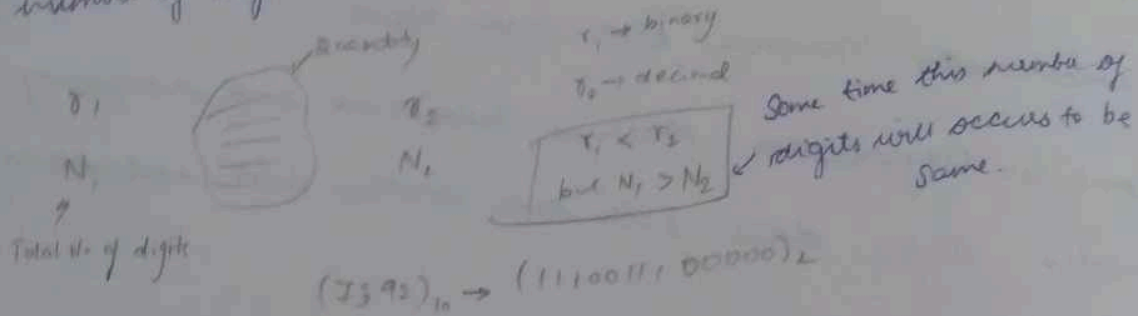 Quantity
r₁ → binary
r₂ → decimal
r₁ r₂
N₁ N₂
r₁ < r₂
but N₁ > N₂
Some time this number of
digits will occurs to be
same.
Total No of digits
(7392)₁₀ → (1110011100000)₂